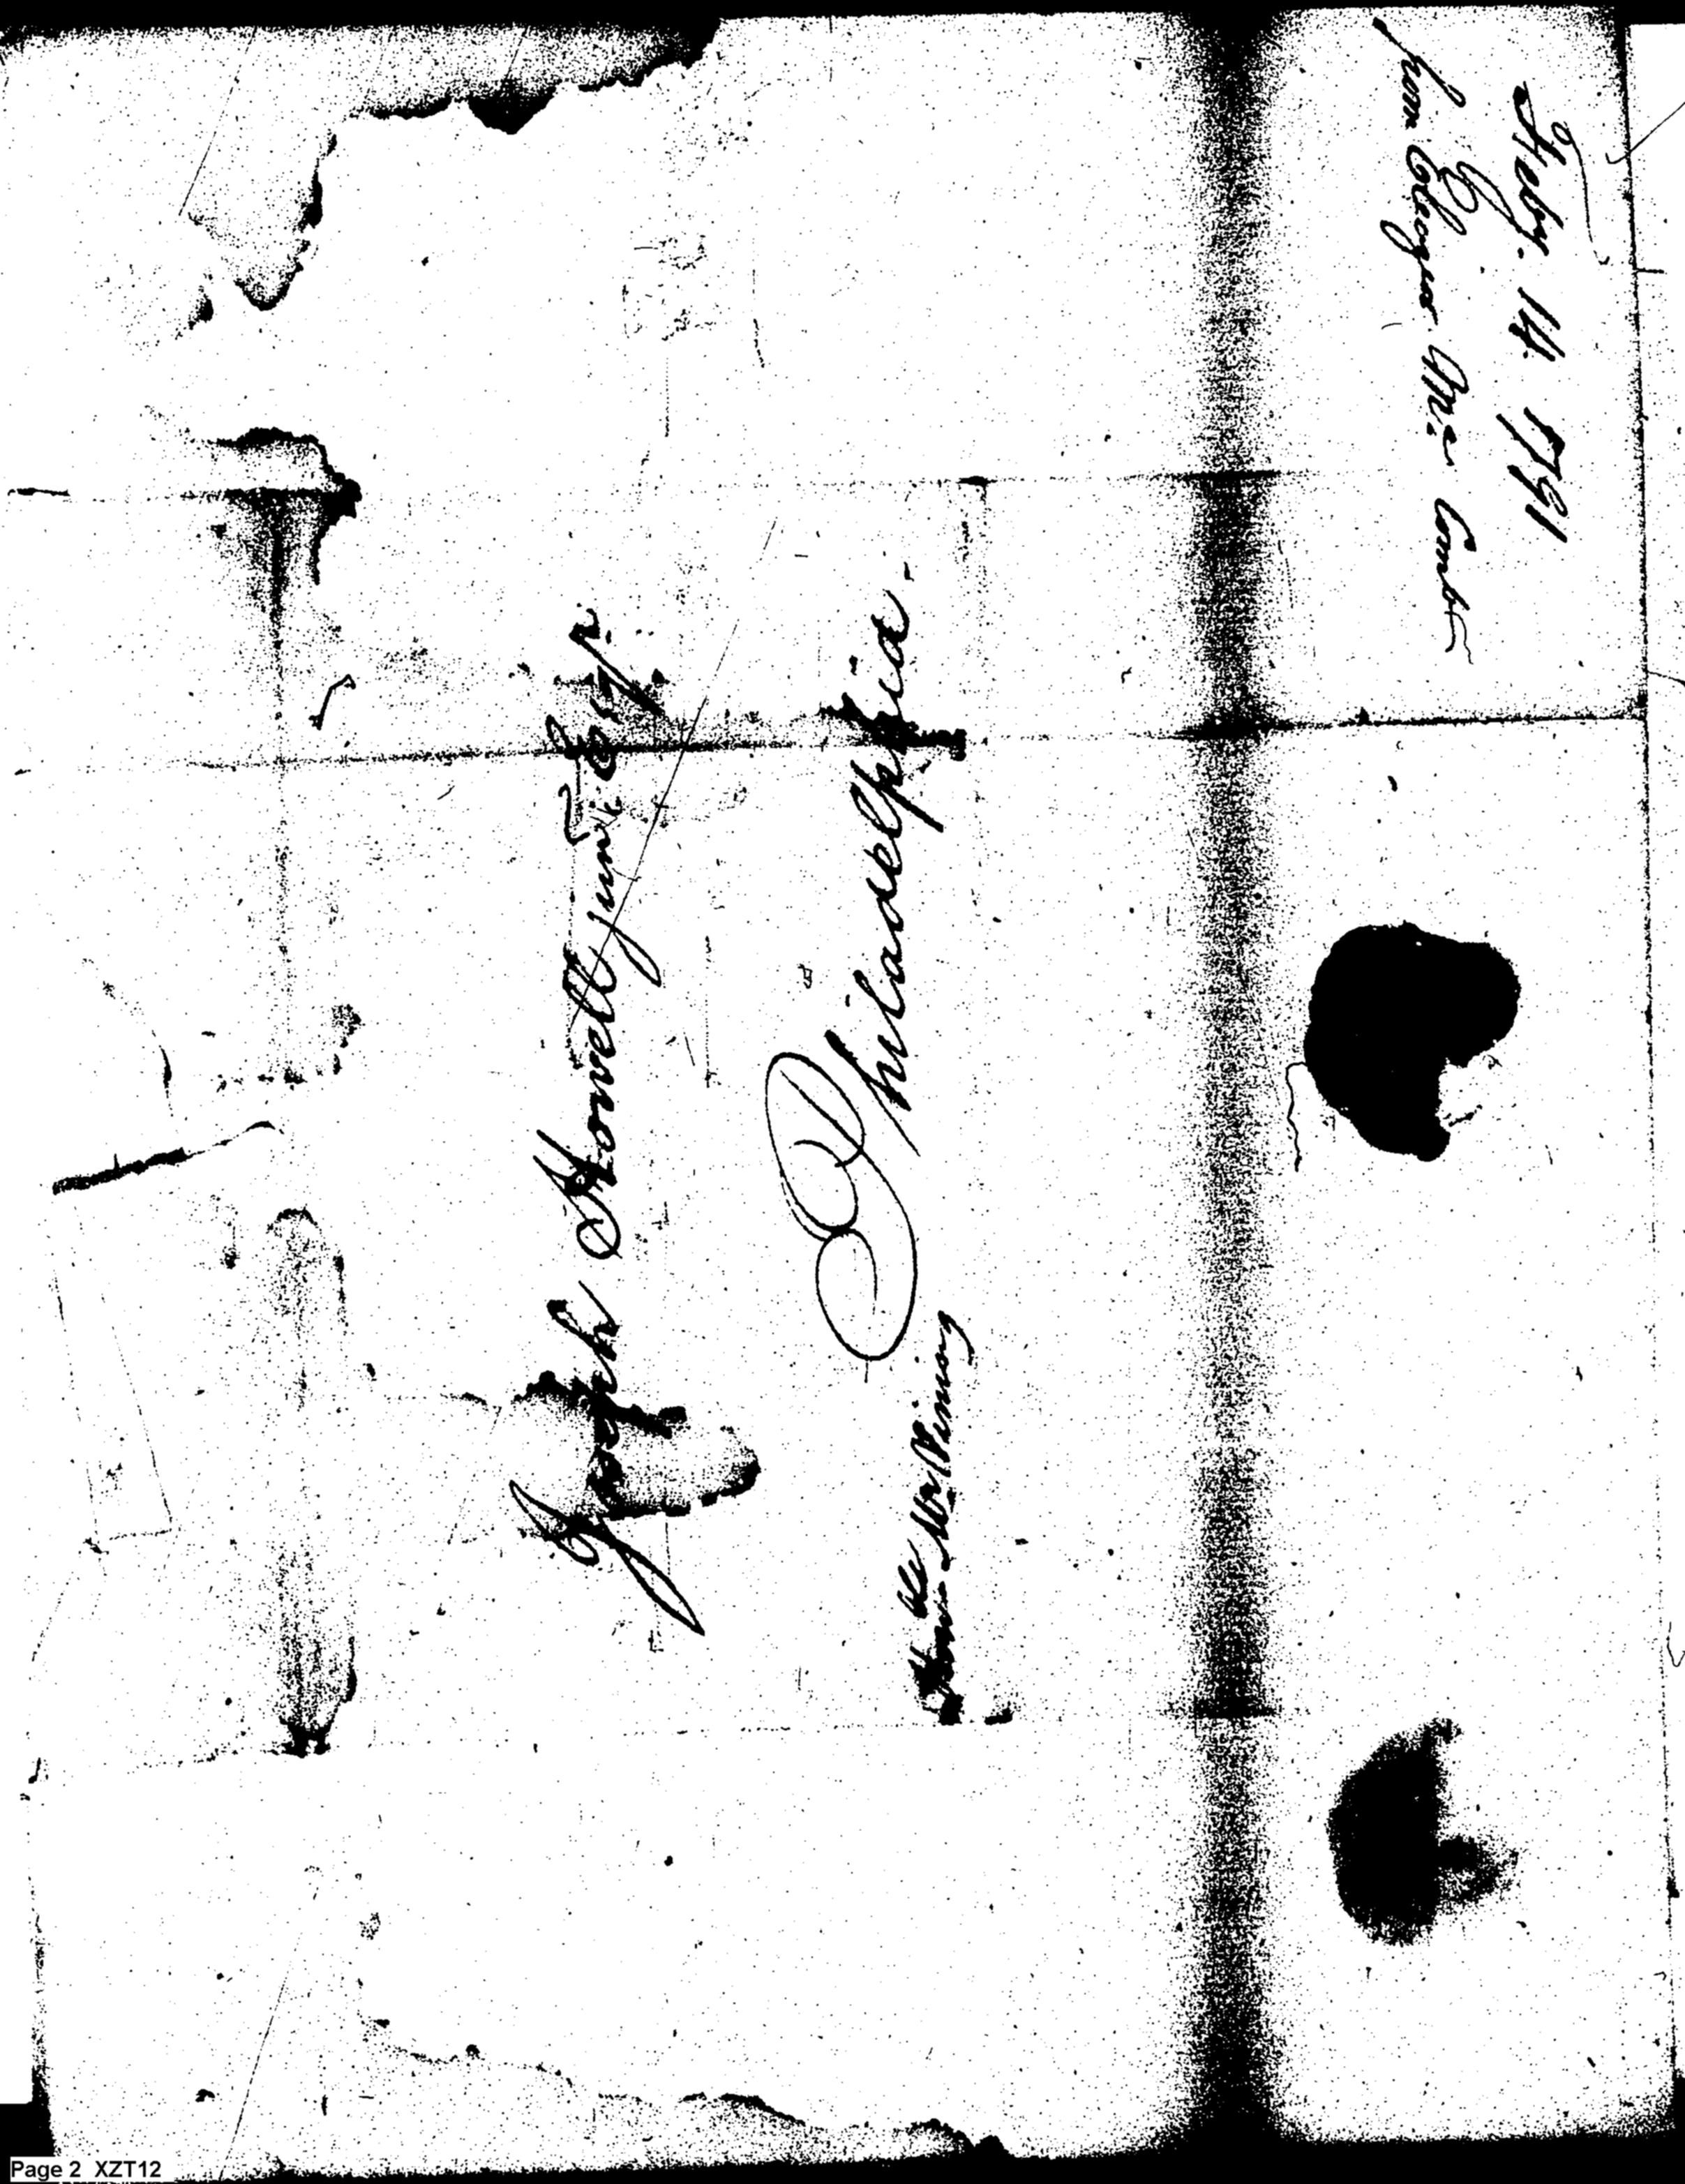 Feby. 14. 1791
from Eleazer Mc. Comb
Joseph Howell junr. Esqr.
Philadelphia.
Honble Mr Vining
Page 2 XZT12